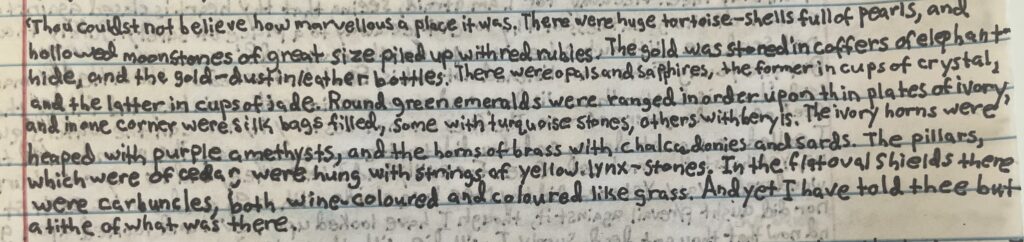 'Thou couldst not believe how marvellous a place it was. There were huge tortoise-shells full of pearls, and
hollowed moonstones of great size piled up with red rubies. The gold was stored in coffers of elephant-
hide, and the gold-dust in leather bottles. There were opals and saphires, the former in cups of crystal,
and the latter in cups of jade. Round green emeralds were ranged in order upon thin plates of ivory,
and in one corner were silk bags filled, some with turquoise stones, others with beryls. The ivory horns were
heaped with purple amethysts, and the horns of brass with chalcedonies and sards. The pillars,
which were of cedar, were hung with strings of yellow lynx-stones. In the flat oval shields there
were carbuncles, both wine-coloured and coloured like grass. And yet I have told thee but
a tithe of what was there.